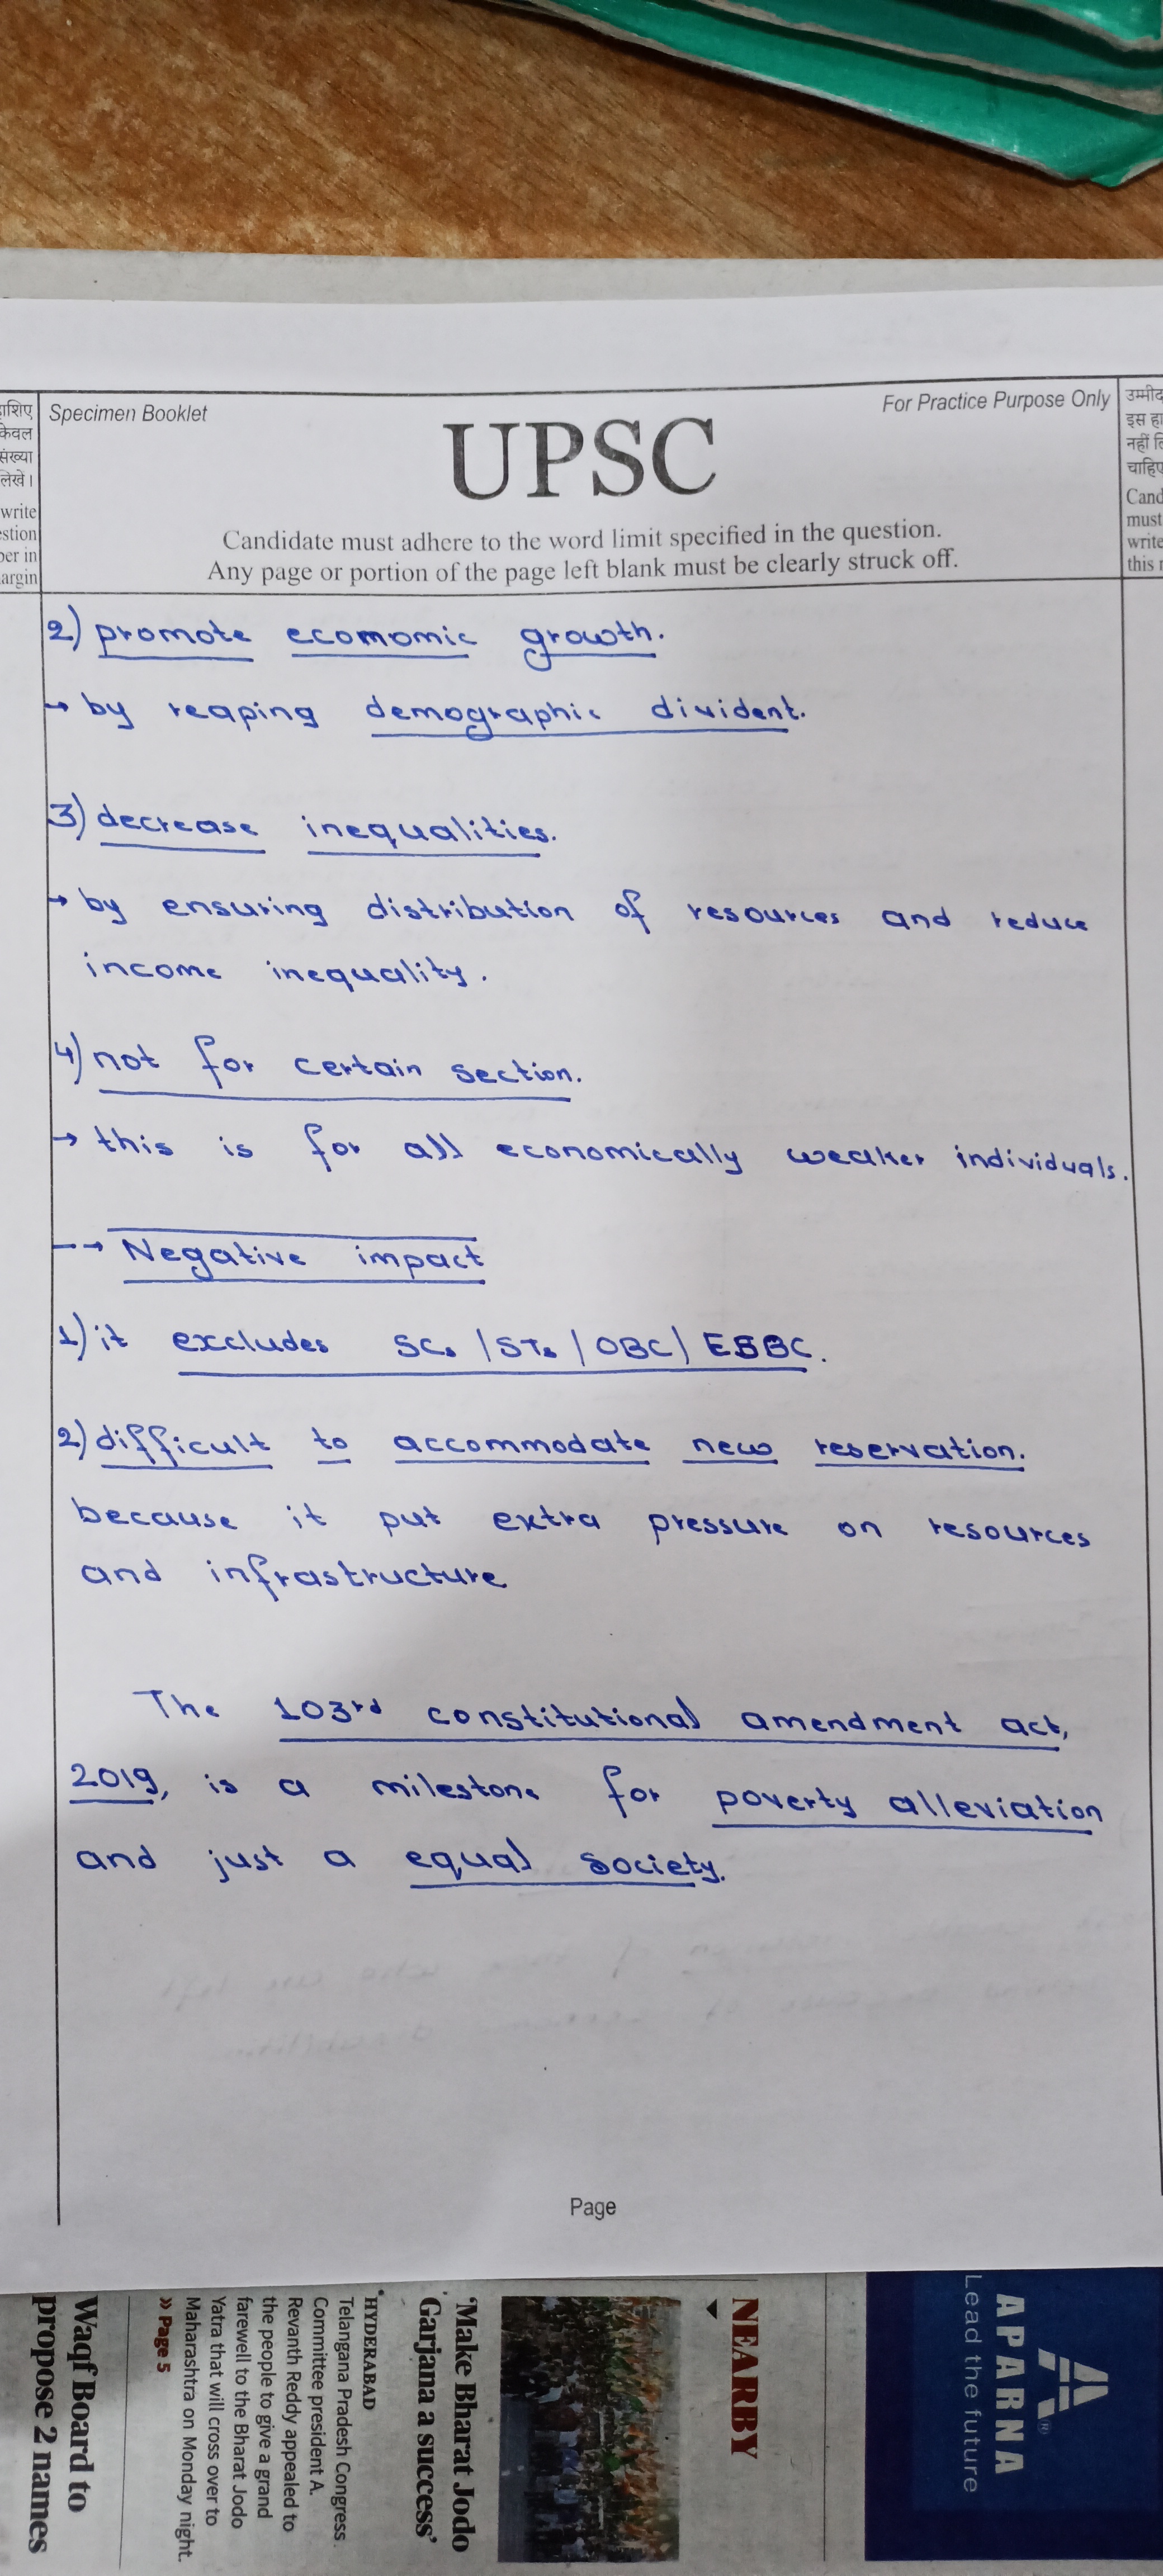 ाशिए
केवल
संख्या
लिखें।
write
estion
ber in
argin
Specimen Booklet
For Practice Purpose Only
UPSC
Candidate must adhere to the word limit specified in the question.
Any page or portion of the page left blank must be clearly struck off.
उम्मीद
इस हा
नहीं लि
चाहिए
Cand
must
write
this
2) promote ecomomic growth.
→ by reaping demographic divident.
3) decrease inequalities.
→ by ensuring distribution of resources and reduce
income inequality.
4) not for certain section.
→ this is for all economically weaker individuals.
--→ Negative impact
1) it excludes SCs / STs / OBC / ESBC.
2) difficult to accommodate new reservation.
because it put extra pressure on resources
and infrastructure
The 103rd constitutional amendment act,
2019, is a milestone for poverty alleviation
and just a equal society.
Page
Waqf Board to
propose 2 names
'Make Bharat Jodo
Garjana a success'
HYDERABAD
Telangana Pradesh Congress
Committee president A.
Revanth Reddy appealed to
the people to give a grand
farewell to the Bharat Jodo
Yatra that will cross over to
Maharashtra on Monday night.
» Page 5
NEARBY
APARNA
Lead the future